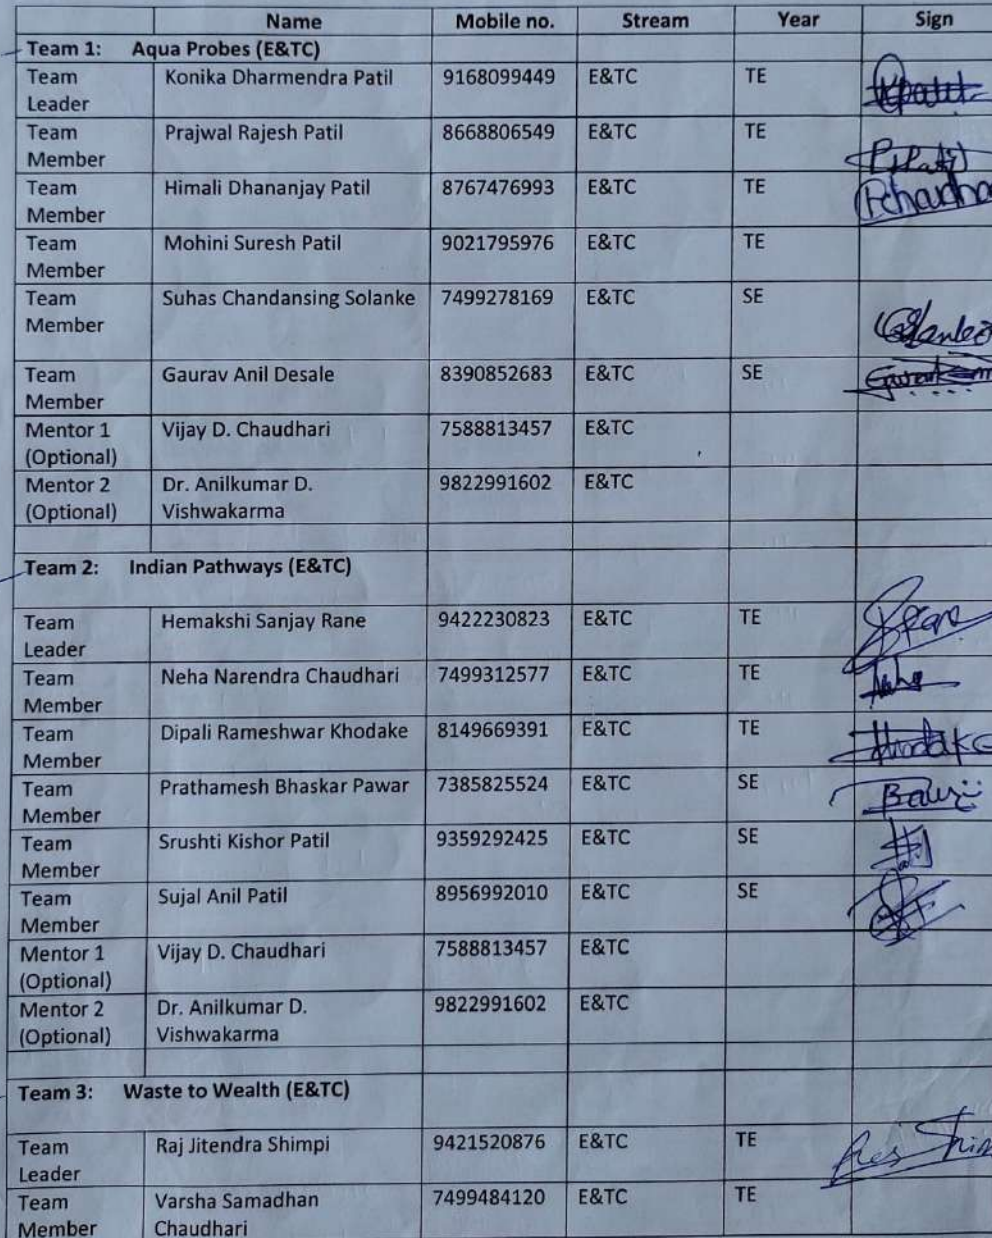 Name Mobile no. Stream Year Sign
Team 1: Aqua Probes (E&TC)
Team Leader Konika Dharmendra Patil 9168099449 E&TC TE
Team Member Prajwal Rajesh Patil 8668806549 E&TC TE
Team Member Himali Dhananjay Patil 8767476993 E&TC TE
Team Member Mohini Suresh Patil 9021795976 E&TC TE
Team Member Suhas Chandansing Solanke 7499278169 E&TC SE
Team Member Gaurav Anil Desale 8390852683 E&TC SE
Mentor 1 (Optional) Vijay D. Chaudhari 7588813457 E&TC
Mentor 2 (Optional) Dr. Anilkumar D. Vishwakarma 9822991602 E&TC
Team 2: Indian Pathways (E&TC)
Team Leader Hemakshi Sanjay Rane 9422230823 E&TC TE
Team Member Neha Narendra Chaudhari 7499312577 E&TC TE
Team Member Dipali Rameshwar Khodake 8149669391 E&TC TE
Team Member Prathamesh Bhaskar Pawar 7385825524 E&TC SE
Team Member Srushti Kishor Patil 9359292425 E&TC SE
Team Member Sujal Anil Patil 8956992010 E&TC SE
Mentor 1 (Optional) Vijay D. Chaudhari 7588813457 E&TC
Mentor 2 (Optional) Dr. Anilkumar D. Vishwakarma 9822991602 E&TC
Team 3: Waste to Wealth (E&TC)
Team Leader Raj Jitendra Shimpi 9421520876 E&TC TE
Team Member Varsha Samadhan Chaudhari 7499484120 E&TC TE